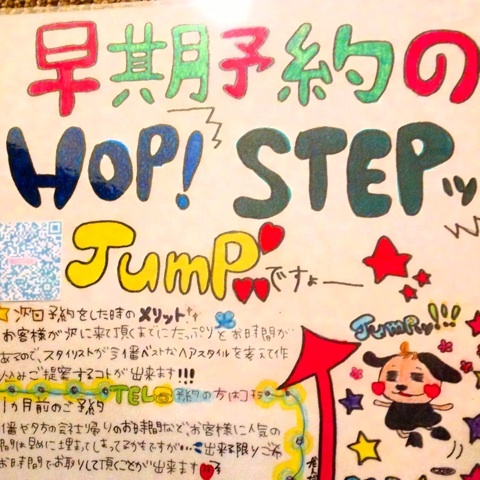 早期予約の
HOP! STEPッ
JUMP ですよー
次回予約をした時のメリット
お客様が次に来て頂くまでにたっぷりとお時間が
あるので、スタイリストが1番ベストなヘアスタイルを考えて作
込みご提案するコトが出来ます!!!
JUMPッ!!!
TEL予約の方はコチラ
1ヶ月前のご予約
1番や夕方の会社帰りのお時間など、お客様に人気の
間は早めに埋まってしまってるかもですが…出来る限りご希
お時間でお取りして頂くことが出来ます